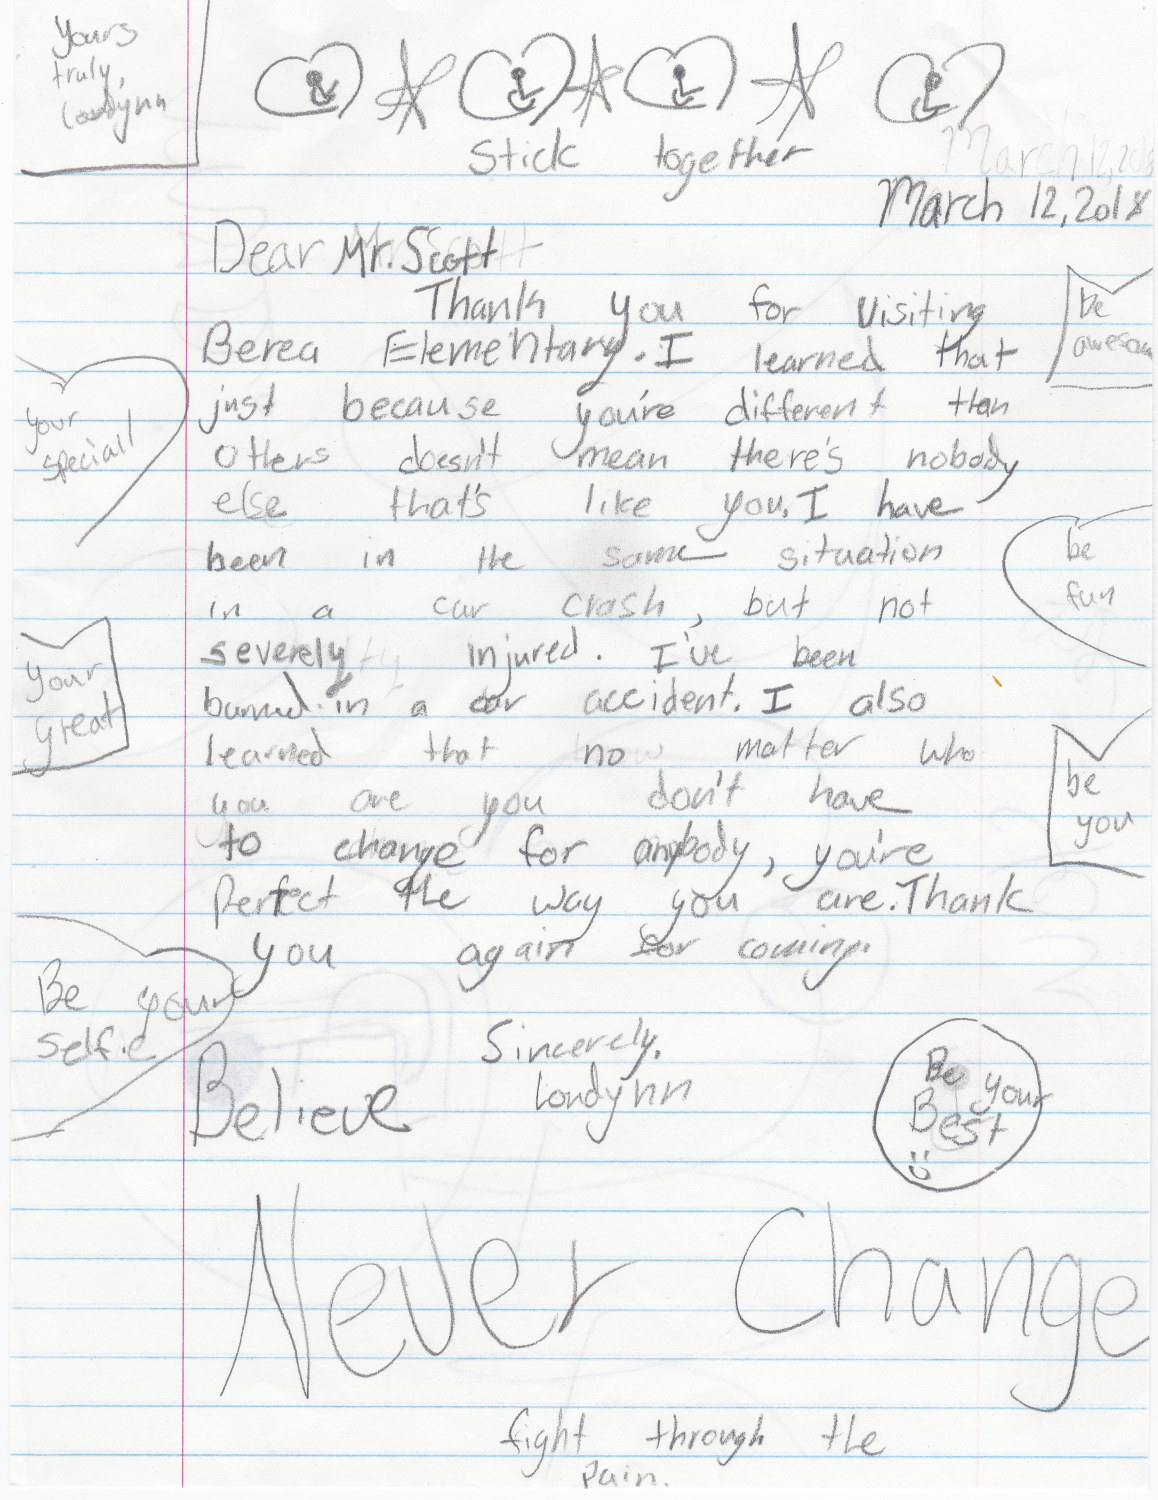 Yours
truly,
Londynn
Stick together
March 12, 2018
March 12, 2018
Dear Mr. Scott
Thank you for visiting
Berea Elementary. I learned that
just because you're different than
others doesn't mean there's nobody
else that's like you. I have
been in the same situation
in a car crash, but not
severely injured. I've been
burned in a car accident. I also
learned that no matter who
you are you don't have
to change for anybody, you're
Perfect the way you are. Thank
you again for coming.
Sincerely,
Londynn
be
awesom
your
special!
be
fun
your
great
be
you
Be your
selfie
Believe
Be your
Best
Never Change
fight through the
pain.